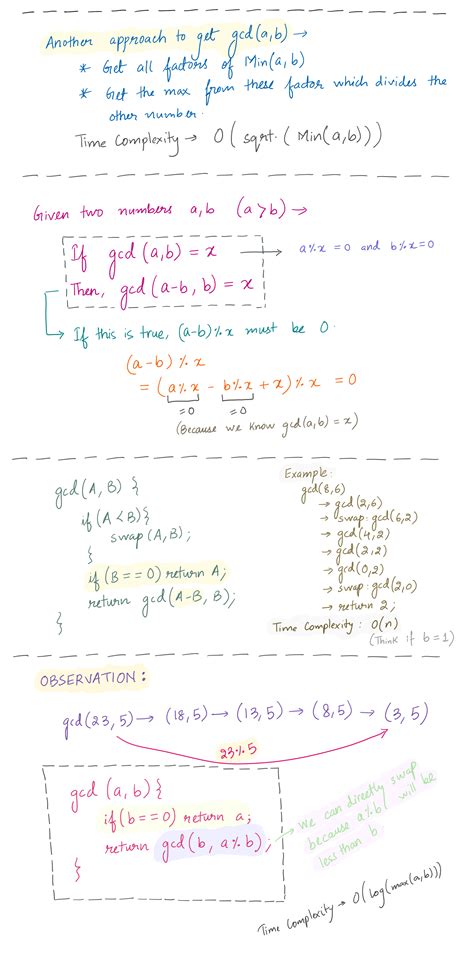 Another approach to get gcd(a,b) →
* Get all factors of Min(a,b)
* Get the max from these factor which divides the
other number.
Time Complexity → O( sqrt. ( Min(a,b)))
Given two numbers a,b (a>b) →
If gcd (a,b) = x → a%x = 0 and b%x=0
Then, gcd (a-b, b) = x
→ If this is true, (a-b)%x must be 0.
(a-b) % x
= (a%x - b%x + x) % x = 0
=0 =0
(Because we know gcd(a,b) = x)
gcd(A, B) {
if (A<B){
swap (A,B);
}
if (B==0) return A;
return gcd(A-B, B);
}
Example:
gcd(8,6)
→ gcd(2,6)
→ swap: gcd(6,2)
→ gcd(4,2)
→ gcd(2,2)
→ gcd(0,2)
→ swap: gcd(2,0)
→ return 2;
Time Complexity : O(n)
(Think if b=1)
OBSERVATION:
gcd(23, 5) → (18,5) → (13,5) → (8,5) → (3,5)
23%5
gcd (a,b) {
if (b==0) return a;
return gcd(b, a%b);
}
→ we can directly swap
because a%b will be
less than b
Time Complexity → O(log(max(a,b)))